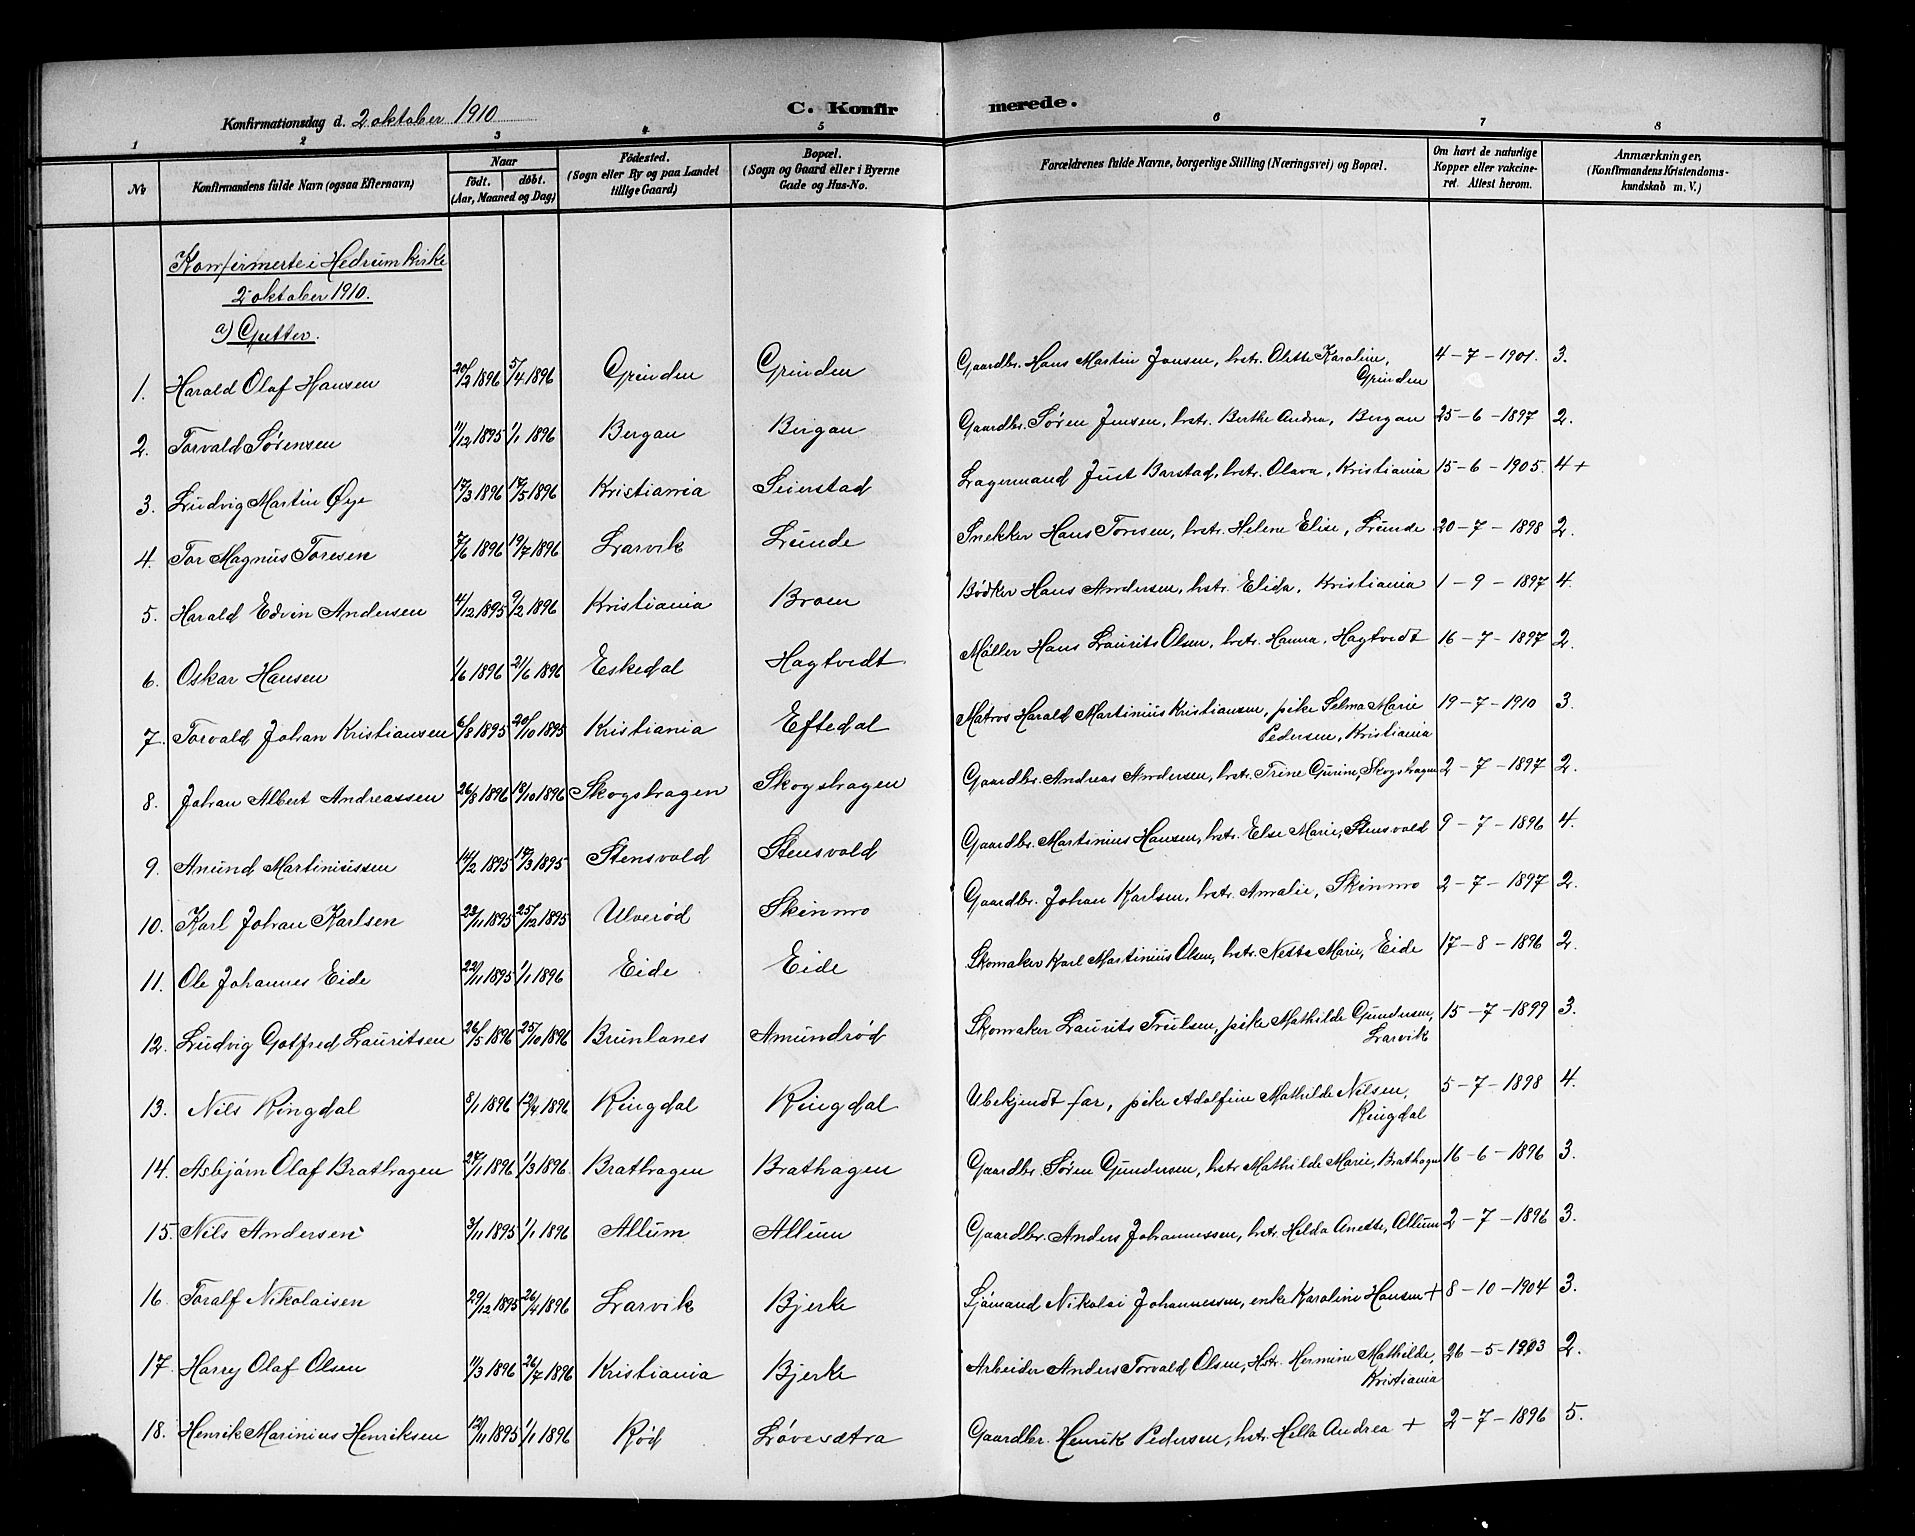 Konfirmationsdag d. 2 oktober 1910
C. Konfirmerede.
1 2 3 4 5 6 7 8
No
Konfirmandens fulde Navn (ogsaa Efternavn)
Naar
født. døbt.
(Aar, Maaned og Dag)
Fødested.
(Sogn eller By og paa Landet
tillige Gaard)
Bopæl.
(Sogn og Gaard eller i Byerne
Gade og Hus-No.
Forældrenes fulde Navne, borgerlige Stilling (Næringsvei) og Bopæl.
Om havt de naturlige
Kopper eller vakcine-
ret. Attest herom.
Anmærkninger.
(Konfirmandens Kristendoms-
kundskab m. V.)
Konfirmerte i Hedrum kirke
2 oktober 1910.
a) Gutter.
1. Harald Olaf Hansen 20/2 1896 5/4 1896 Grinden Grinden Gaardbr. Hans Martin Jansen, hstr. Olette Karoline, Grinden 4-7-1901. 3.
2. Torvald Sørensen 11/12 1895 1/1 1896 Bergan Bergan Gaardbr. Søren Jensen, hstr. Berthe Andrea, Bergan 25-6-1897 2.
3. Ludvig Martin Øye 17/3 1896 17/5 1896 Kristiania Seierstad Lagermand Just Barstad, hstr. Olava, Kristiania 15-6-1905. 4 +
4. Tor Magnus Toresen 7/6 1896 19/7 1896 Larvik Lunde Snekker Hans Toresen, hstr. Helene Elise, Lunde 20-7-1898 2.
5. Harald Edvin Andersen 4/12 1895 9/2 1896 Kristiania Broen Bødker Hans Andersen, hstr. Elida, Kristiania 1-9-1897 4.
6. Oskar Hansen 1/6 1896 21/6 1896 Eskedal Hagtvedt Møller Hans Laurits Olsen, hstr. Hanna, Hagtvedt 16-7-1897 2.
7. Torvald Johan Kristiansen 6/8 1895 20/10 1895 Kristiania Eftedal Matros Harald Martinius Kristiansen, pike Selma Marie Pedersen, Kristiania 19-7-1910 3.
8. Johan Albert Andreassen 26/8 1896 18/10 1896 Skogshagen Skogshagen Gaardbr. Andreas Andersen, hstr. Trine Gurine, Skogshagen 2-7-1897 2.
9. Amund Martiniussen 14/2 1895 17/3 1895 Stensvold Stensvold Gaardbr. Martinius Hansen, hstr. Else Marie, Stensvold 9-7-1896 4.
10. Karl Johan Karlsen 23/11 1895 25/12 1895 Ulverød Skinmo Gaardbr. Johan Karlsen, hstr. Amalie, Skinmo 2-7-1897 2.
11. Ole Johannes Eide 22/11 1895 1/1 1896 Eide Eide Skomaker Karl Martinius Olsen, hstr. Nette Marie, Eide 17-8-1896 2.
12. Ludvig Gotfred Lauritsen 26/5 1896 25/10 1896 Brunlanes Amundrød Skomaker Laurits Trulsen, pike Mathilde Gundersen, Larvik 15-7-1899 3.
13. Nils Ringdal 8/1 1896 12/4 1896 Ringdal Ringdal Ubekjendt far, pike Adolfine Mathilde Nilsen, Ringdal 5-7-1898 4.
14. Asbjørn Olaf Brathagen 27/1 1896 1/3 1896 Brathagen Brathagen Gaardbr. Søren Gundersen, hstr. Mathilde Marie, Brathagen 16-6-1896 3.
15. Nils Andersen 3/11 1895 1/1 1896 Allum Allum Gaardbr. Anders Johannessen, hstr. Helda Anette, Allum 2-7-1896 3.
16. Toralf Nikolaisen 29/12 1895 26/4 1896 Larvik Bjerke Sjømand Nikolai Johannessen, enke Karoline Hansen + 8-10-1904 3.
17. Harry Olaf Olsen 11/3 1896 26/7 1896 Kristiania Bjerke Arbeider Anders Torvald Olsen, Hstr. Hermine Mathilde, Kristiania 26-5-1903 2.
18. Henrik Marinius Henriksen 12/11 1895 1/1 1896 Rød Løvesætra Gaardbr. Henrik Pedersen, hstr. Hella Andrea + 2-7-1896 5.